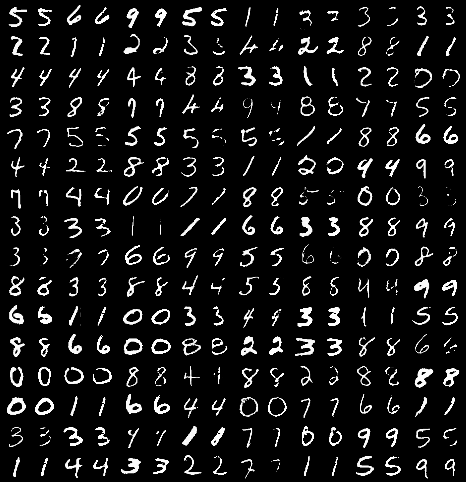 5 5 6 6 9 9 5 5 1 1 3 3 3 3 3
2 2 1 1 2 2 3 3 4 4 2 2 8 8 1 1
4 4 4 4 4 4 8 8 3 3 1 1 2 2 0 0
3 3 8 8 7 7 4 4 9 9 8 8 7 7 5 5
7 7 5 5 5 5 5 5 5 5 1 1 8 8 6 6
4 4 2 2 8 8 3 3 1 1 2 0 9 4 9 9
7 7 4 4 0 0 7 7 8 8 5 5 0 0 3
3 3 3 3 1 1 1 1 6 6 3 3 8 8 9 9
3 3 7 7 6 6 9 9 5 5 6 6 0 0 8 8
8 8 3 3 8 8 4 4 5 5 8 8 4 4 9 9
6 6 1 1 0 0 3 3 4 9 3 3 1 1 5 5
8 8 6 6 0 0 8 8 2 2 3 3 8 8 6 6
0 0 0 0 8 8 4 4 8 8 2 2 8 8 8 8
0 0 1 1 6 6 4 4 0 0 7 7 6 6 1 1
3 3 3 3 4 4 1 8 7 7 0 0 9 9 5 5
1 1 4 4 3 3 2 2 7 7 1 1 5 5 9 9